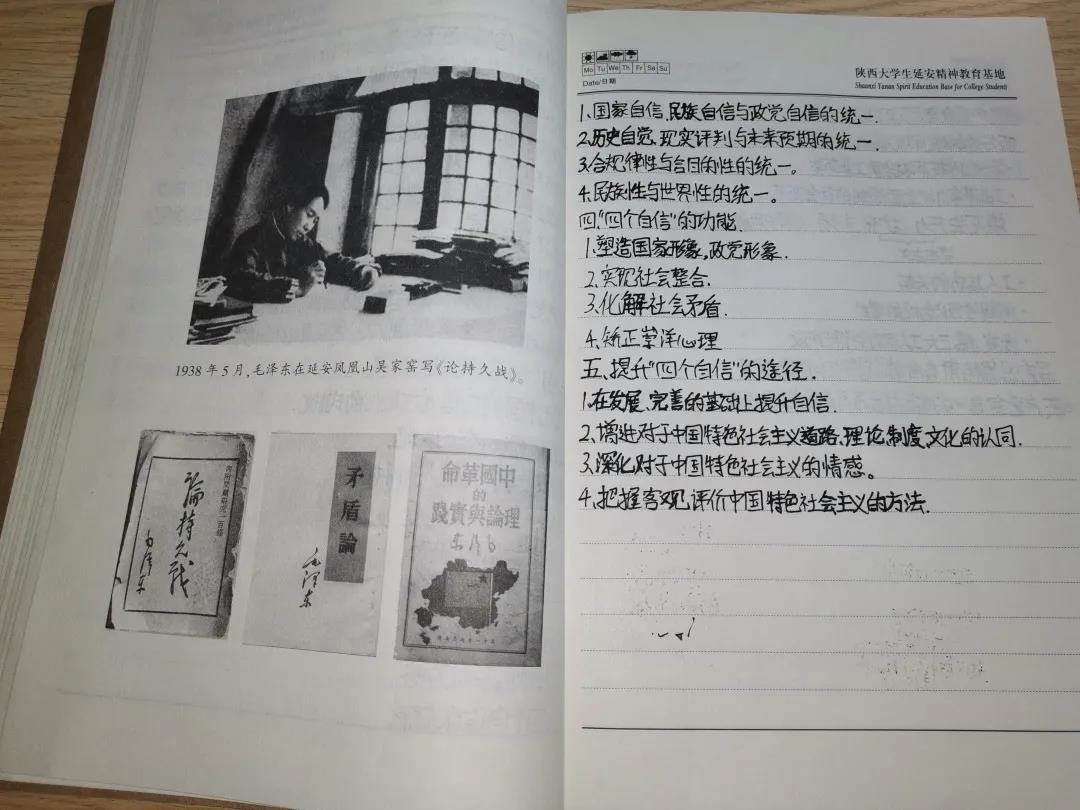 1938年5月，毛泽东在延安凤凰山吴家窑写《论持久战》。
論持久战
毛泽东
矛盾論
毛泽东
中國革命
的
理論與實踐
Mo Tu We Th Fr Sa Su
Date/日期
陕西大学生延安精神教育基地
Shaanxi Yanan Spirit Education Base for College Students
1、国家自信、民族自信与政党自信的统一.
2、历史自觉、现实评判与未来预期的统一.
3.合规律性与合目的性的统一。
4.民族性与世界性的统一。
四、“四个自信”的功能.
1.塑造国家形象，政党形象.
2.实现社会整合.
3.化解社会矛盾.
4.矫正崇洋心理
五、提升“四个自信”的途径.
1.在发展、完善的基础上提升自信.
2、增进对于中国特色社会主义道路、理论、制度、文化的认同.
3、深化对于中国特色社会主义的情感。
4.把握客观评价中国特色社会主义的方法.